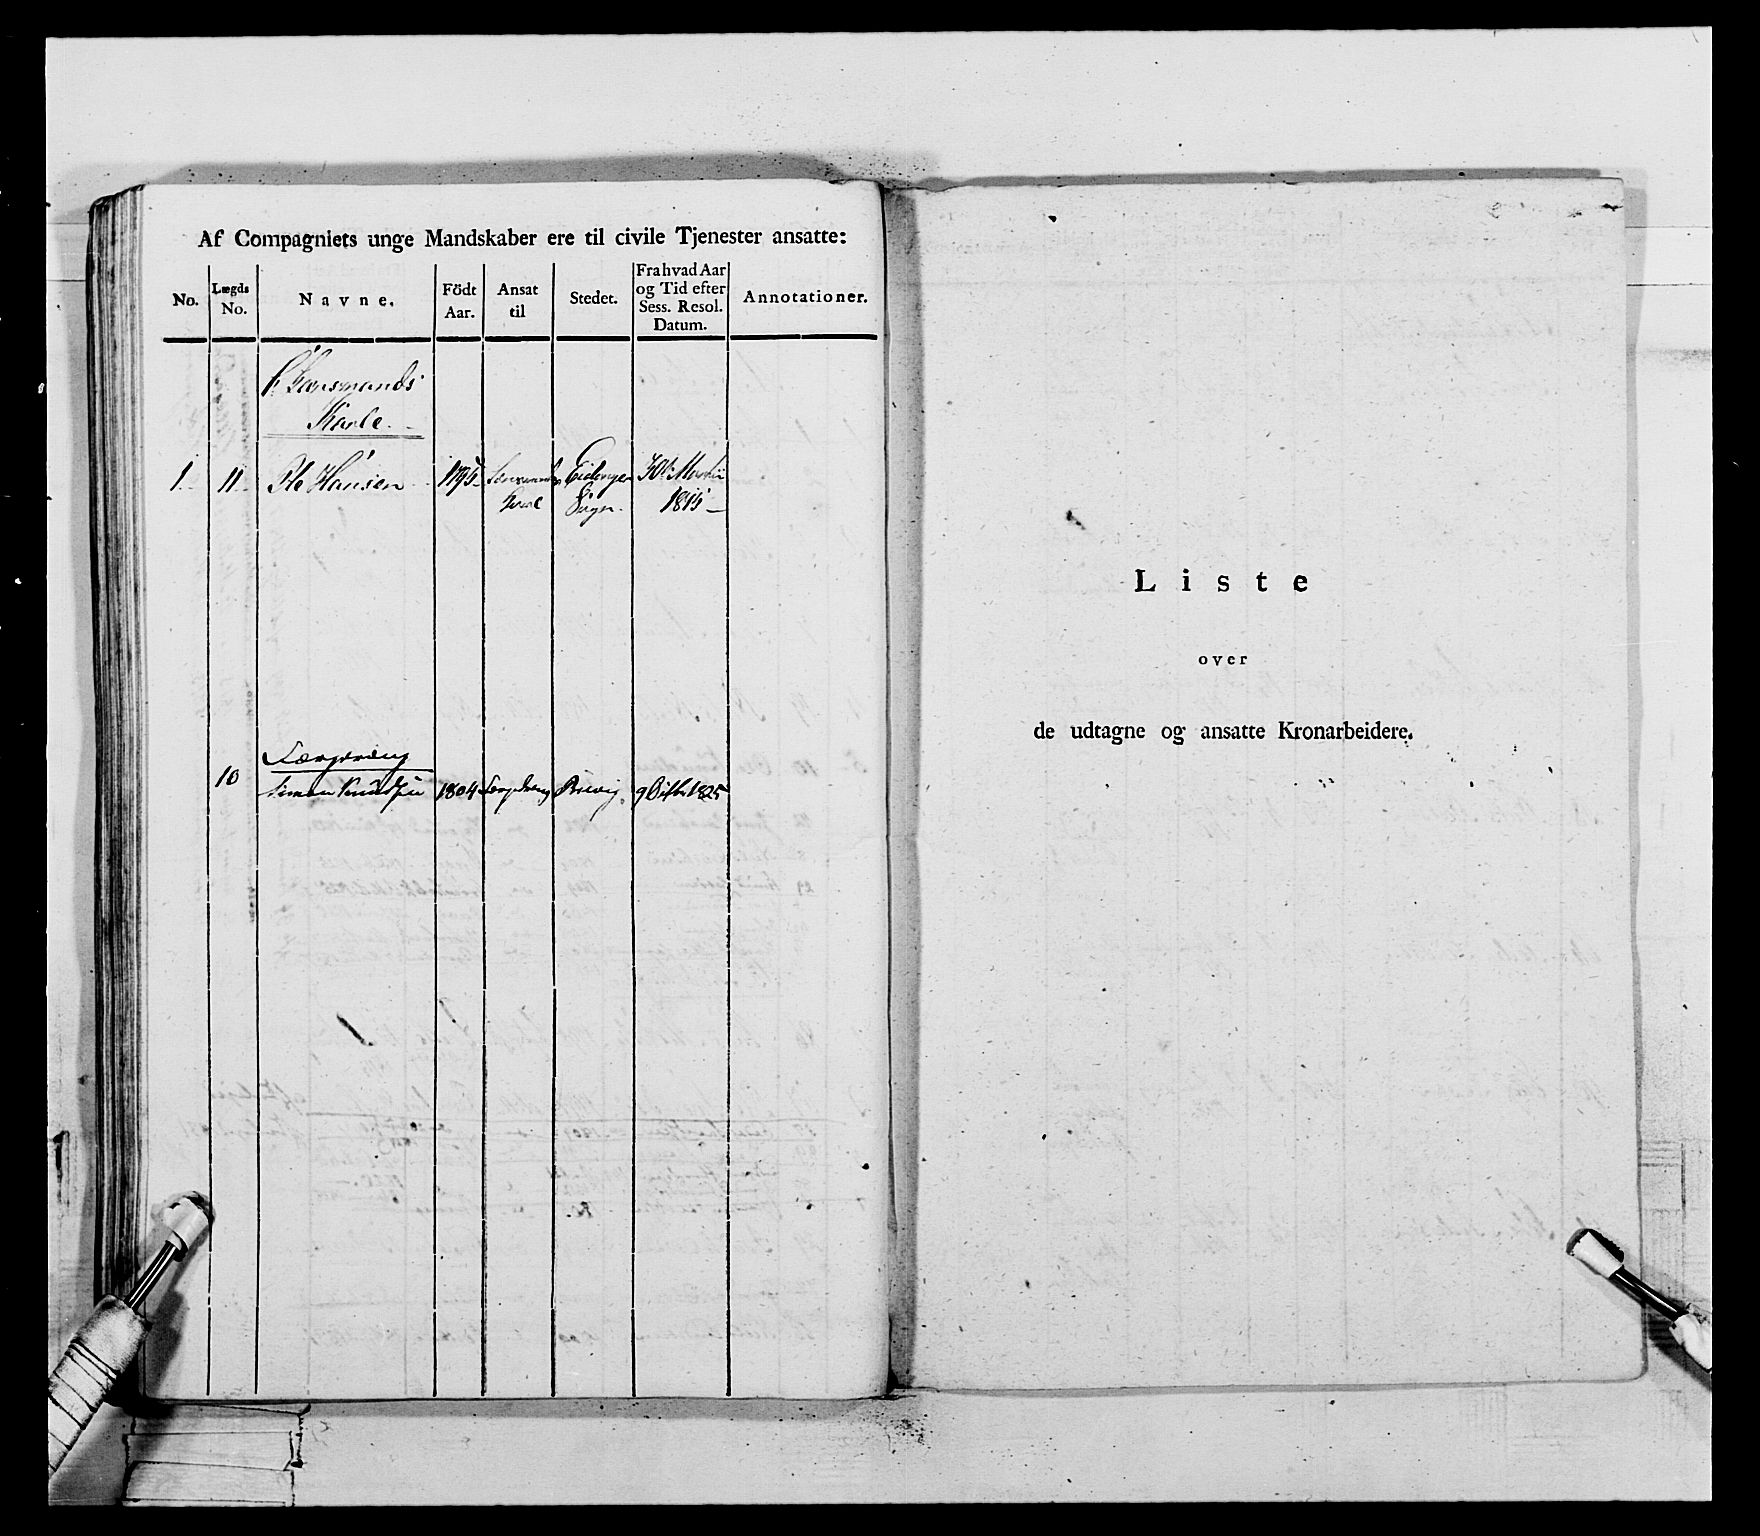 Af Compagniets unge Mandskaber ere til civile Tjenester ansatte:
No. Lægds No. Navne. Födt Aar. Ansat til Stedet. Fra hvad Aar og Tid efter Sess. Resol. Datum. Annotationer.
Lænsmands
Karle.
1 11 Ole Hansen 1795 Lænsmands Karl Eidanger Sogn 30te Martii 1815
Færgedreng
10 Simon Knudsen 1804 Brevig 9 Octbr 1825
Liste
over
de udtagne og ansatte Kronarbeidere.